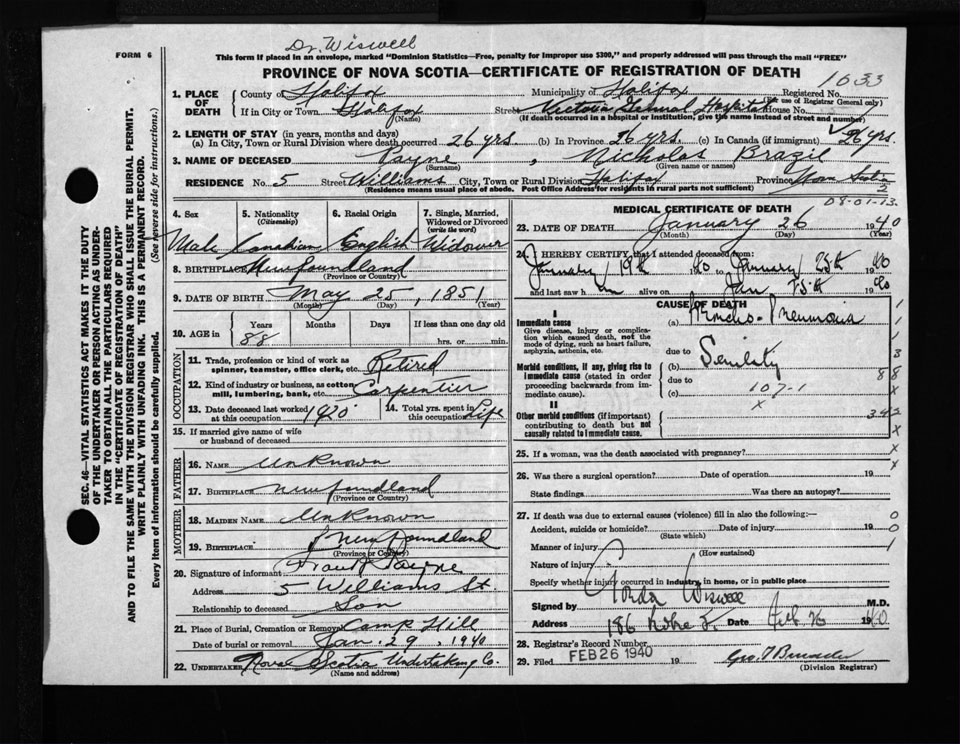 Dr. Wiswell
FORM 6
This form if placed in an envelope, marked "Dominion Statistics—Free, penalty for improper use $300," and properly addressed will pass through the mail "FREE"
PROVINCE OF NOVA SCOTIA—CERTIFICATE OF REGISTRATION OF DEATH
1033
1. PLACE OF DEATH
County of Halifax Municipality of Halifax Registered No.
(For use of Registrar General only)
If in City or Town Halifax Street Victoria General Hospital House No.
(Name) (If death occurred in a hospital or institution, give the name instead of street and number)
2. LENGTH OF STAY (in years, months and days)
(a) In City, Town or Rural Division where death occurred 26 yrs. (b) In Province 26 yrs. (c) In Canada (if immigrant) 26 yrs.
3. NAME OF DECEASED Payne, Nicholas Brazil
(Surname) (Given name or names)
RESIDENCE No. 5 Street Williams City, Town or Rural Division Halifax Province Nova Scotia
(Residence means usual place of abode. Post Office Address for residents in rural parts not sufficient)
2
08-01-73
4. Sex
Male
5. Nationality
(Citizenship)
Canadian
6. Racial Origin
English
7. Single, Married, Widowed or Divorced
(write the word)
Widower
8. BIRTHPLACE Newfoundland
(Province or Country)
9. DATE OF BIRTH May 25, 1851
(Month) (Day) (Year)
10. AGE in Years Months Days If less than one day old
88 hrs. or min.
OCCUPATION
11. Trade, profession or kind of work as spinner, teamster, office clerk, etc. Retired
12. Kind of industry or business, as cotton mill, lumbering, bank, etc. Carpentier
13. Date deceased last worked at this occupation 1920
14. Total yrs. spent in this occupation Life
15. If married give name of wife or husband of deceased
FATHER
16. NAME Unknown
17. BIRTHPLACE Newfoundland
(Province or Country)
MOTHER
18. MAIDEN NAME Unknown
19. BIRTHPLACE Newfoundland
(Province or Country)
20. Signature of informant Frank Payne
Address 5 Williams St.
Relationship to deceased Son
21. Place of Burial, Cremation or Removal Camp Hill
Date of burial or removal Jan. 29, 1940
22. UNDERTAKER Nova Scotia Undertaking Co.
(Name and address)
MEDICAL CERTIFICATE OF DEATH
23. DATE OF DEATH January 26 1940
(Month) (Day) (Year)
24. I HEREBY CERTIFY, that I attended deceased from:
January 19th 1940 to January 25th 1940
and last saw him alive on Jan 25th 1940
CAUSE OF DEATH
I
Immediate cause
Give disease, injury or complication which caused death, not the mode of dying, such as heart failure, asphyxia, asthenia, etc.
(a) Broncho-Pneumonia
due to
Morbid conditions, if any, giving rise to immediate cause (stated in order proceeding backwards from immediate cause).
(b) Senility
due to
(c) 107-1
x
II
Other morbid conditions (if important) contributing to death but not causally related to immediate cause.
1
1
3
88
342
x
x
25. If a woman, was the death associated with pregnancy?
26. Was there a surgical operation? Date of operation 19
State findings Was there an autopsy?
27. If death was due to external causes (violence) fill in also the following:—
Accident, suicide or homicide? Date of injury 19
(State which)
Manner of injury
(How sustained)
Nature of injury
Specify whether injury occurred in industry, in home, or in public place
0
0
1
Signed by Gordon Wiswell M.D.
Address 186 Date Feb 26 1940
28. Registrar's Record Number
29. Filed FEB 26 1940 19
(Division Registrar)
SEC. 46—VITAL STATISTICS ACT MAKES IT THE DUTY
OF THE UNDERTAKER OR PERSON ACTING AS UNDERTAKER TO OBTAIN ALL THE PARTICULARS REQUIRED
IN THE "CERTIFICATE OF REGISTRATION OF DEATH"
AND TO FILE THE SAME WITH THE DIVISION REGISTRAR WHO SHALL ISSUE THE BURIAL PERMIT.
WRITE PLAINLY WITH UNFADING INK. THIS IS A PERMANENT RECORD.
Every item of information should be carefully supplied. (See reverse side for instructions.)